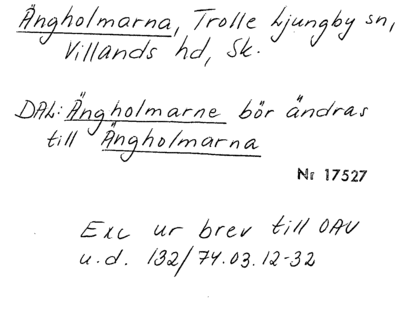 Ängholmarna, Trolle Ljungby sn,
Villands hd, Sk.
DAL: Ängholmarne bör ändras
till Ängholmarna
Nr 17527
Exc ur brev till OAU
u.d. 132/74.03.12-32